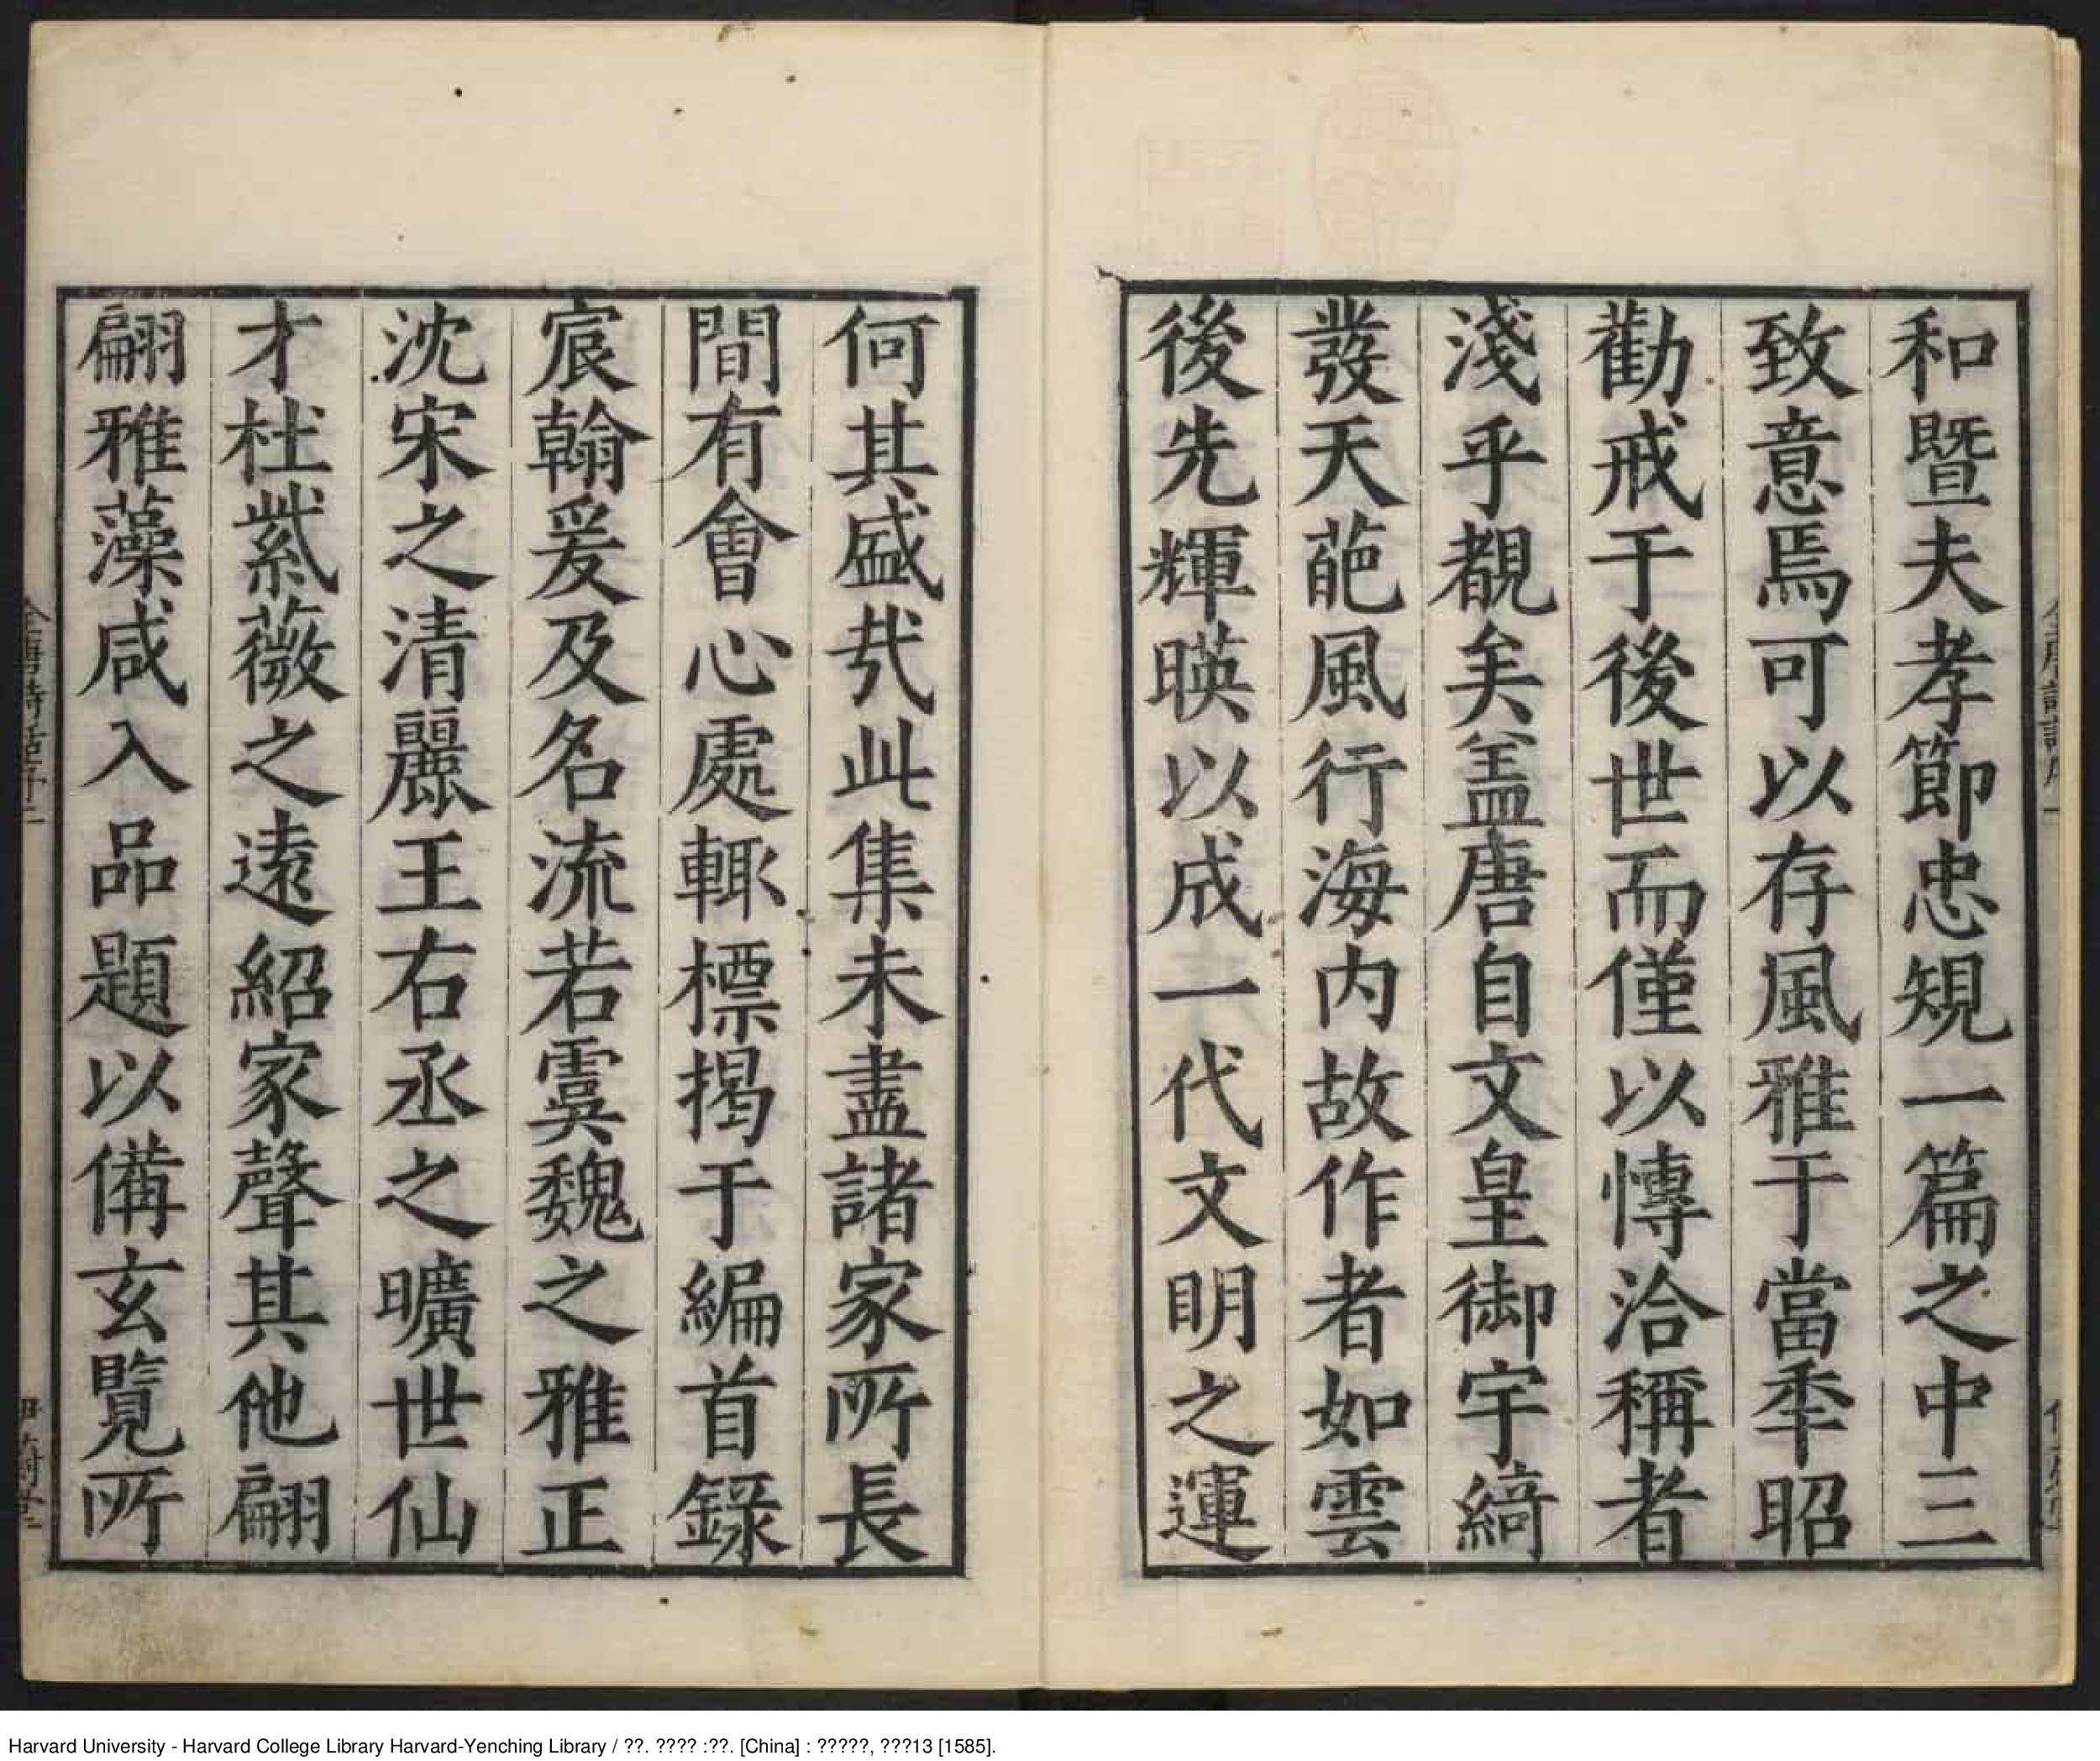 和暨夫孝節忠規一篇之中三
致意焉可以存風雅于當季昭
勸戒于後世而僅以慱洽稱者
淺乎覩矣盖唐自文皇御宇綺
發天葩風行海内故作者如雲
後先輝暎以成一代文明之運
何其盛㦲此集未盡諸家所長
間有會心處輙標揭于編首録
宸翰爰及名流若虞魏之雅正
沈宋之清麗王右丞之曠世仙
才杜紫薇之遠紹家聲其他翩
翩雅藻咸入品題以備玄覽所
Harvard University - Harvard College Library Harvard-Yenching Library / ??. ???? :??. [China] : ?????, ???13 [1585].